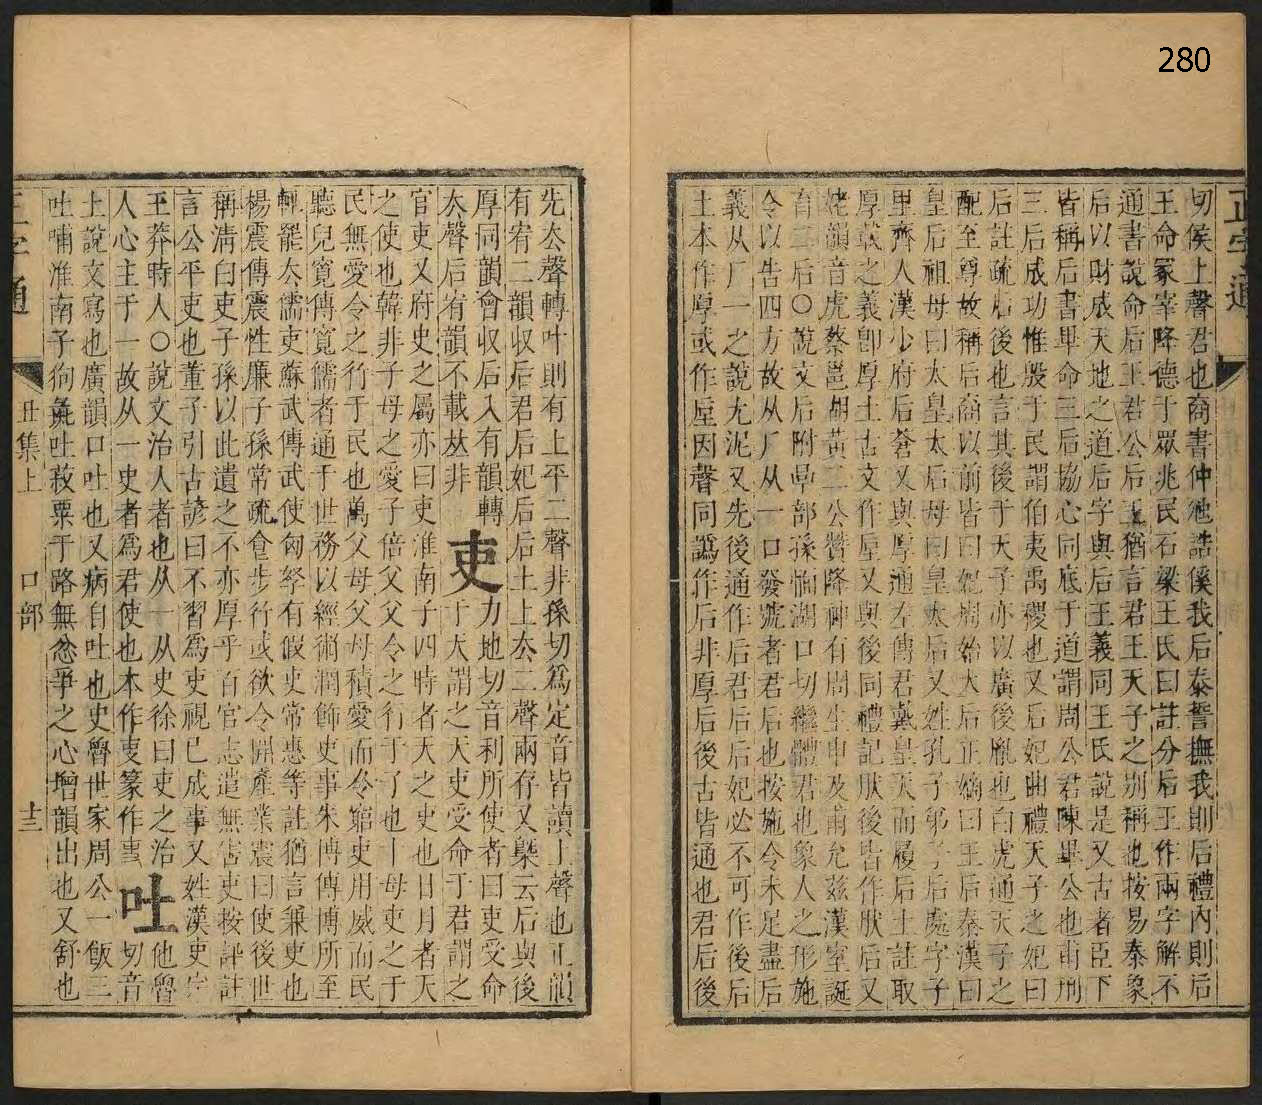 280
正字通
切侯上聲君也商書仲虺誥徯我后泰誓撫我則后禮內則后
王命冢宰降德于眾兆民石梁王氏曰註分后王作兩字解不
通書說命后王君公后王猶言君王天子之別稱也按易泰象
后以財成天地之道后字與后王義同王氏說是又古者臣下
皆稱后書畢命三后協心同底于道謂周公君陳畢公也甫刑
三后成功惟殷于民謂伯夷禹稷也又后妃曲禮天子之妃曰
后註疏后後也言其後于天子亦以廣後胤也白虎通天子之
配至尊故稱后商以前皆曰妃周始大后正嫡曰王后秦漢曰
皇后祖母曰太皇太后母曰皇太后又姓孔子弟子后處字子
里齊人漢少府后蒼又與厚通左傳君戴皇天而履后土註取
厚載之義卽厚土古文作垕又與後同禮記肰後皆作肰后又
姥韻音虎蔡邕胡黃二公贊降神有周生申及甫允茲漢室誕
育二后〇說文后附㫗部孫愐湖口切繼體君也象人之形施
令以告四方故从厂从一口發號者君后也按施令未足盡后
義从厂一之說尤泥又先後通作后君后后妃必不可作後后
土本作厚或作垕因聲同譌作后非厚后後古皆通也君后後
先厺聲轉叶則有上平二聲非孫切爲定音皆讀上聲也正韻
有宥二韻收后君后妃后后土上厺二聲兩存又槩云后與後
厚同韻會收后入有韻轉
厺聲后宥韻不載𠀤非
吏
力地切音利所使者曰吏受命
于天謂之天吏受命于君謂之
官吏又府史之屬亦曰吏淮南子四時者天之吏也日月者天
之使也韓非子母之愛子倍父父令之行于子也十母吏之于
民無愛令之行于民也萬父母父母積愛而令窮吏用威而民
聽兒寬傳寬儒者通于世務以經術潤飾吏事朱博傳博所至
輒罷厺儒吏蘇武傳武使匈奴有假吏常惠等註猶言兼吏也
楊震傳震性廉子孫常疏食步行或欲令開產業震曰使後世
稱淸白吏子孫以此遺之不亦厚乎百官志遣無害吏按評註
言公平吏也董子引古諺曰不習爲吏視已成事又姓漢吏宗
王莽時人〇說文治人者也从一从史徐曰吏之治
人心主于一故从一史者爲君使也本作㕝篆作
吐
他魯
切音
上說文寫也廣韻口吐也又病自吐也史魯世家周公一飯三
吐哺淮南子狗彘吐菽粟于路無忿爭之心增韻出也又舒也
正字通
丑集上
口部
十三